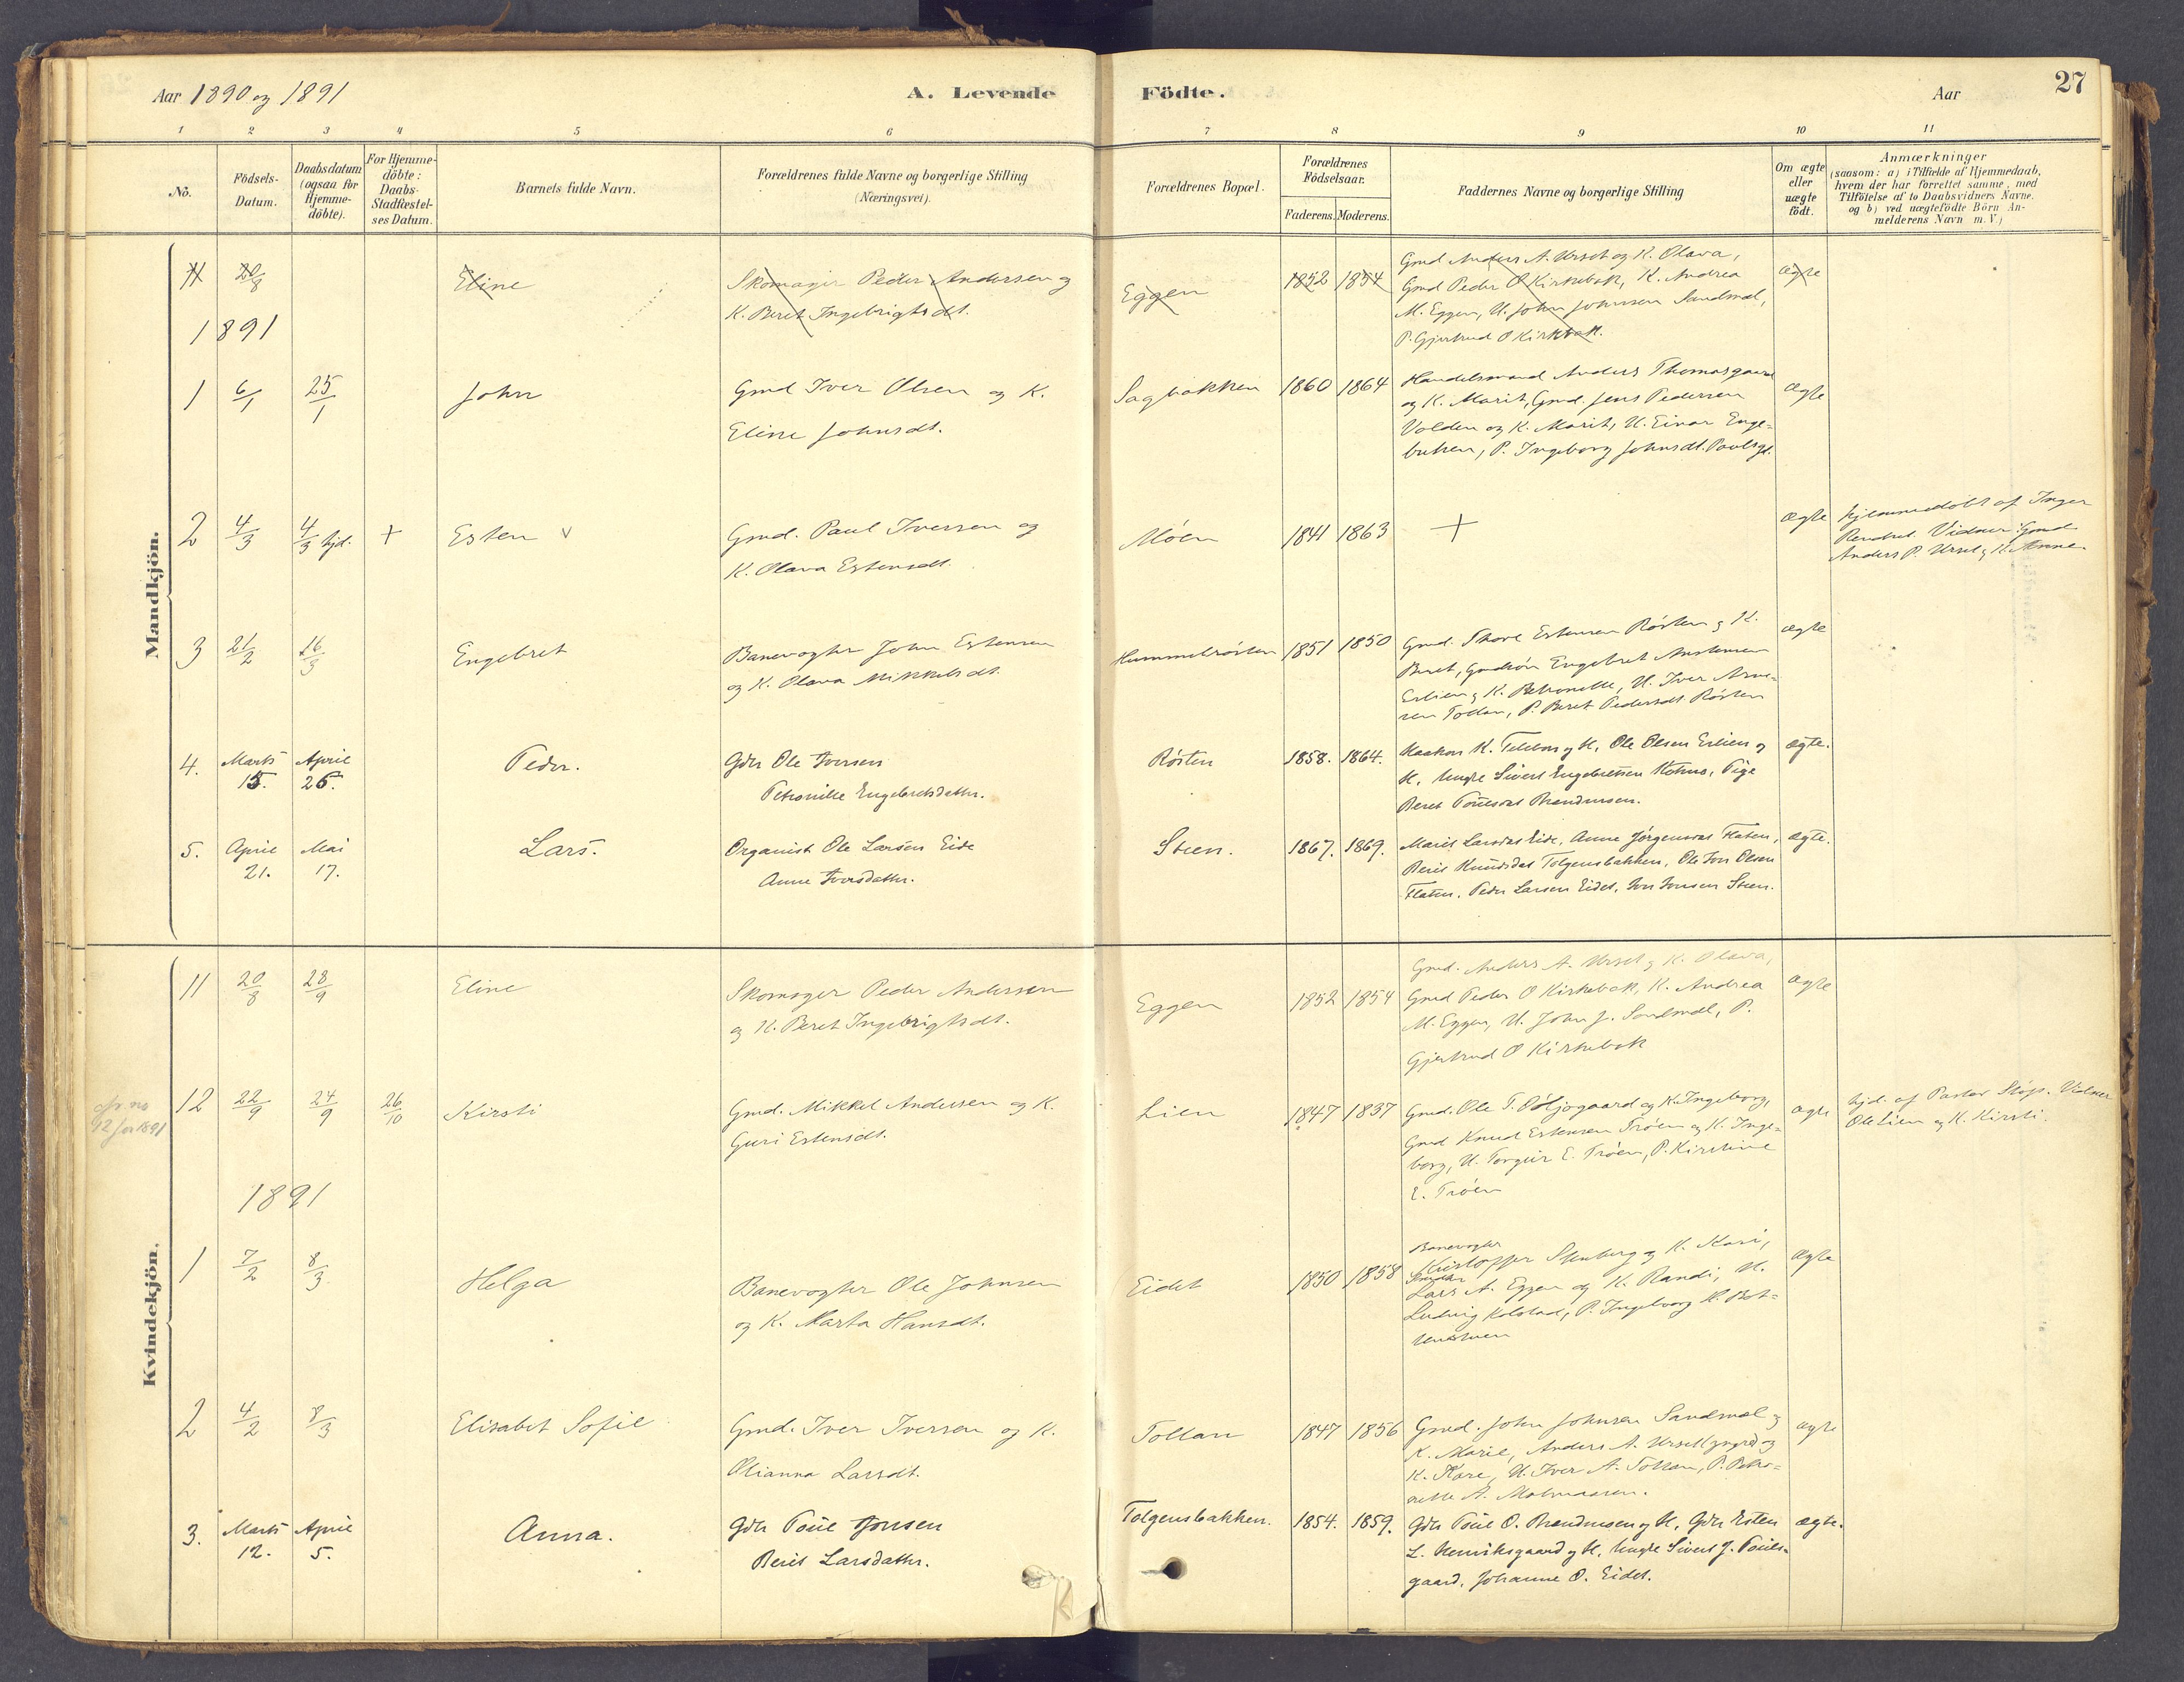 Aar 1890 og 1891
A. Levende Födte.
Aar
27
1 2 3 4 5 6 7 8 9 10 11
No.
Födsels-Datum.
Daabsdatum (ogsaa for Hjemme-döbte).
For Hjemme-döbte: Daabs-Stadfæstel-ses Datum.
Barnets fulde Navn.
Forældrenes fulde Navne og borgerlige Stilling
(Næringsvei).
Forældrenes Bopæl.
Forældrenes Födselsaar.
Faderens. Moderens.
Faddernes Navne og borgerlige Stilling
Om ægte eller uægte födt.
Anmærkninger
(saasom: a) i Tilfælde af Hjemmedaab,
hvem der har forrettet samme, med
Tilföielse af to Daabsvidners Navne.
og b) ved uægtefödte Börn An-
melderens Navn m. V.)
Mandkjön.
11 20/8 Eline Skomager Peder Andersen og
K. Beret Ingebrigtsdt.
Eggen 1852 1854
Gmd Anders A. Urset og K. Olava,
Gmd Peder O Kirkebak, K. Andrea
M. Eggen, U. John Johnsen Sandmæl,
P. Gjertrud O Kirkbak.
ægte
1891
1 6/1 25/1 John Gmd Iver Olsen og K.
Eline Johnsdt.
Sagbakken 1860 1864
Handelsmand Anders Thomasgaard
og K. Marit, Gmd. Jens Pedersen
Volden og K. Marit, U. Einar Enge-
bretsen, P. Ingeborg Johnsdt. Paulsgd.
ægte
2 4/3 4/3 hjd. + Esten v Gmd. Paul Iversen og
K. Olava Estensdt.
Móen 1841 1863 + ægte
hjemmedöbt af Inger
Vidner: Gmd
Anders P. Urset og K. Anne
3 21/2 16/3 Engebret Banevogter John Estensen
og K. Olava Mikkelsdt.
Hummelrösten 1851 1850
Gmd. Thore Estensen Rösten og K.
Beret, Engebret
Erlien og K. Petronelle, U. Iver Arne-
sen Tollan, P. Beret Pedersdt Rösten
ægte
4. Marts 15. April 26. Peder. Gdr Ole Iversen
Petronille Engebretsdatter.
Rösten 1858. 1864.
Haakon K. og K, Ole Olsen Erlien og
K. Ungk Sivert Engebretsen, Pige
Beret
ægte.
5. April 21. Mai 17. Lars. Organist Ole Larsen Eide
Anne Iversdatter.
Steen. 1867. 1869.
Marit Larsdat Eide, Anne Jörgensdat Flaten,
Berit Knudsdat Tolgensbakken, Ole Jon Olsen
Flaten. Peder Larsen Eidet, Steen.
ægte.
Kvindekjön.
11 20/8 28/9 Eline Skomager Peder Andersen
og K. Beret Ingebrigtsdt.
Eggen 1852 1854
Gmd. Anders A. Urset og K. Olava,
Gmd Peder O Kirkebak, K. Andrea
M. Eggen, U. John J. Sandmæl, P.
Gjertrud O Kirkebak
ægte
12 for 1891
12 22/9 24/9 26/10 Kirsti Gmd. Mikkel Andersen og K.
Guri Estensdt.
Lien 1847 1837
Gmd. Ole T. og K. Ingeborg,
Gmd Knud Estensen Tröen og K. Inge-
borg, U. Torger E. Tröen, P. Kirstine
E. Tröen
ægte
hjd. af Pastor Vidner
Ole Lien og K. Kirsti.
1891
1 7/2 8/3 Helga Banevogter Ole Johnsen
og K. Marta Hansdt.
Eidet 1850 1858
Banevogter
Kristoffer Stenberg og K. Kari,
Lars A. Eggen og K. Randi, U.
Ludvig Kolstad, P. Ingeborg K.
ægte
2 4/2 8/3 Elisabet Sofie Gmd. Iver Iversen og K.
Olianna Larsdt.
Tollan 1847 1856
Gmd. John Johnsen Sandmæl og
K. Marie, Anders A. Urset og
K. Kare, U. Iver A. Tollan, P. Petro-
nelle A. Malmaasen.
ægte
3. Marts 12. April 5. Anna. Gdr Poul Jonsen
Berit Larsdatter.
Tolgensbakken. 1854. 1859.
Gdr Poul O. Brændmoen og K, Gdr Esten
L. Henriksgaard og K, Ungk Sivert J. Pouls-
gaard, Johanne O. Eidet.
ægte.